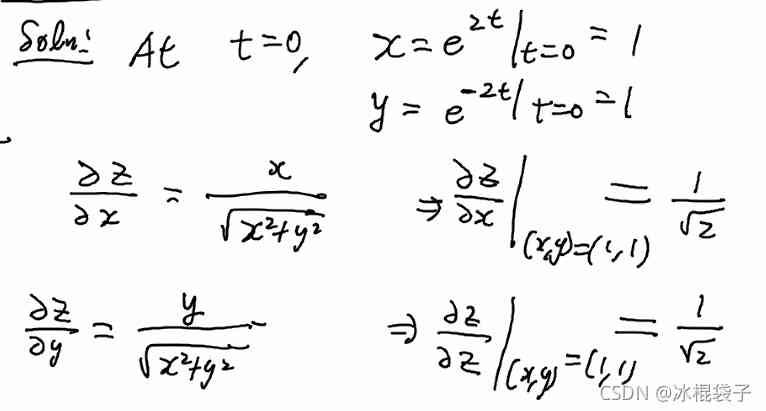 Soln: At t=0, x = e^{2t}|_{t=0} = 1
y = e^{-2t}|_{t=0} = 1
∂z/∂x = x/√(x²+y²) ⇒ ∂z/∂x|_{(x,y)=(1,1)} = 1/√2
∂z/∂y = y/√(x²+y²) ⇒ ∂z/∂z|_{(x,y)=(1,1)} = 1/√2
CSDN @冰棍袋子